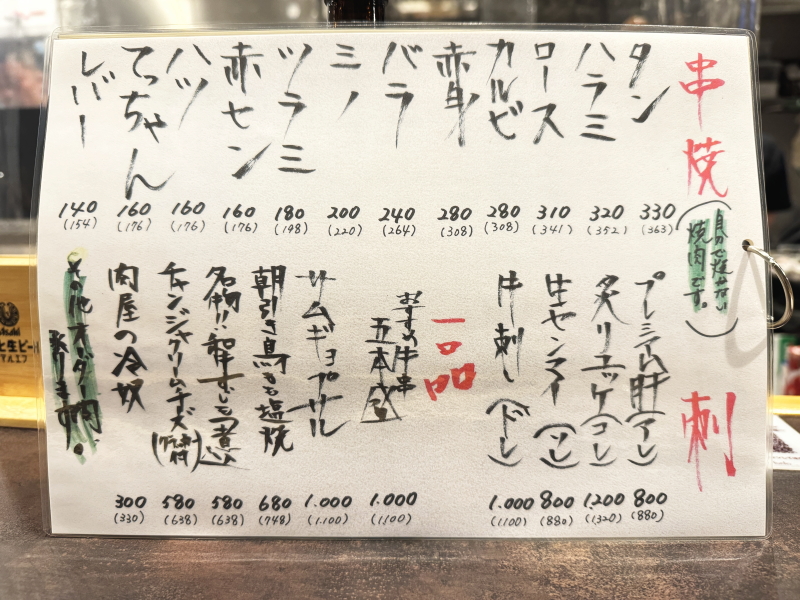 串焼
(自分で焼かない
焼肉です。)
タン 330 (363)
ハラミ 320 (352)
ロース 310 (341)
カルビ 280 (308)
赤身 280 (308)
バラ 240 (264)
ミノ 200 (220)
ツラミ 180 (198)
赤セン 160 (176)
ハツ 160 (176)
てっちゃん 160 (176)
レバー 140 (154)
刺
プレミアム肝(アレ) 800 (880)
炙りユッケ(コレ) 1.200 (1.320)
生センマイ(ソレ) 800 (880)
牛刺し(ドレ) 1.000 (1100)
一品
おすすめ牛串
五本盛 1.000 (1100)
サムギョプサル 1.000 (1.100)
朝引き鳥もも塩焼 680 (748)
名物!! 580 (638)
チャンジャクリームチーズ 580 (638)
肉屋の冷奴 300 (330)
その他オーダー
生ビール
マルエフ